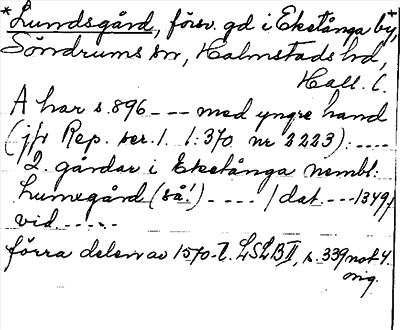 * Lundsgård, försv. gd i Eketånga by, *
Söndrums sn, Halmstads hd,
Hall. l.
A har s. 896 --- med yngre hand
(jfr Rep. ser. 1. 1:370 nr 2223): ----
2 gårdar i Eketånga nembl.
Lumegård (så!) ---- / dat. --- 1349/
vid -----
förra delen av 1570-t. LSLB II, s. 339 not 4.
orig.